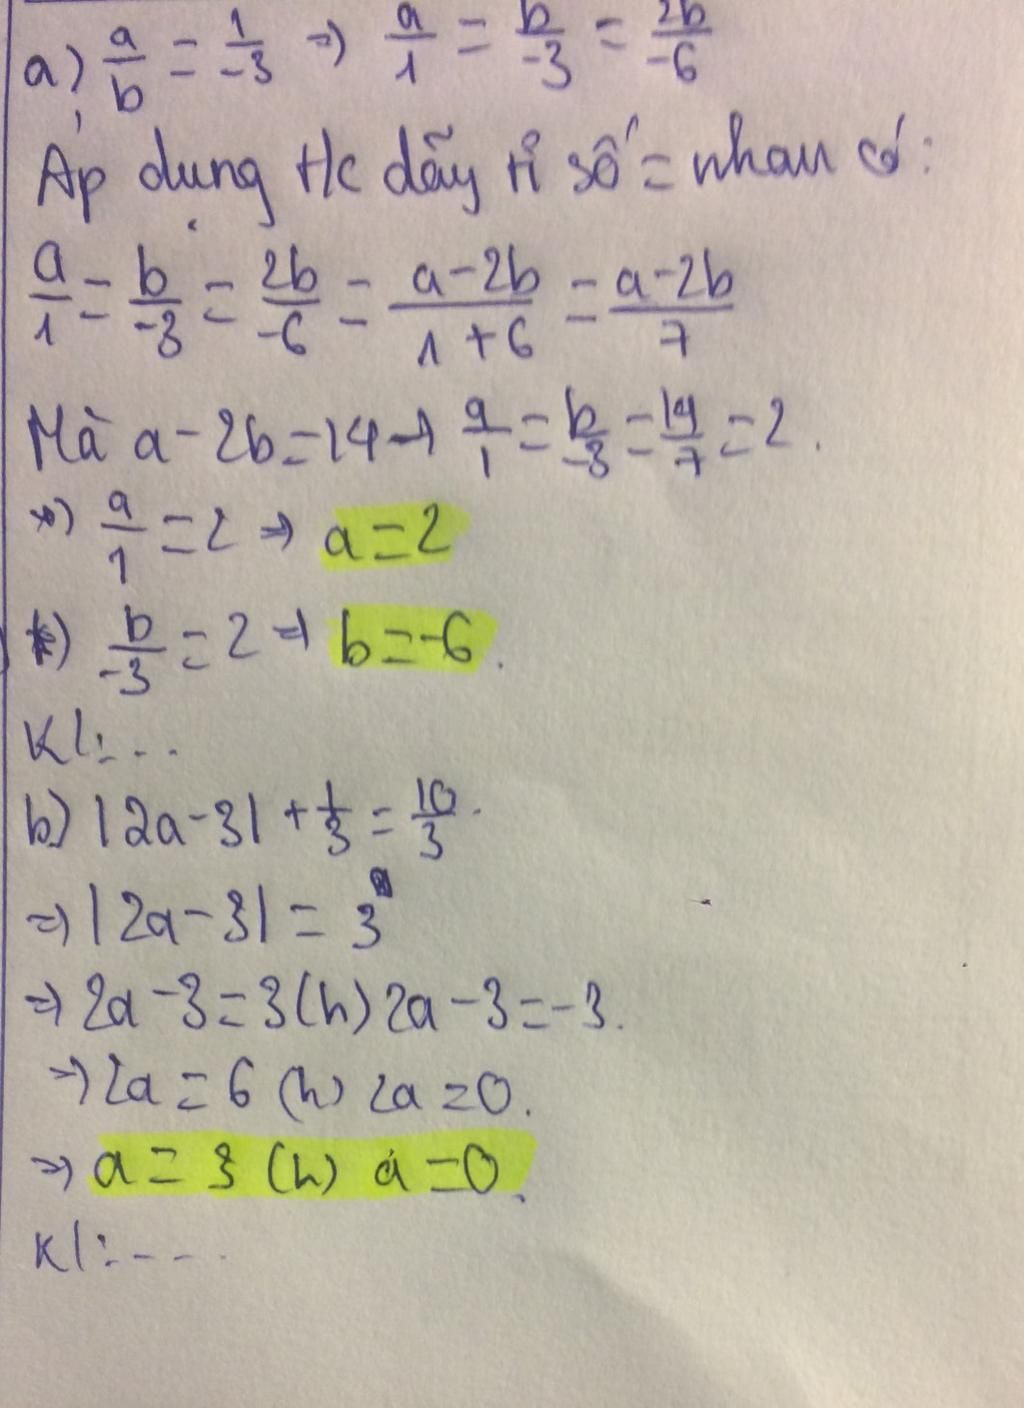 a) a/b = 1/-3 => a/1 = b/-3 = 2b/-6
Áp dụng t/c dãy tỉ số = nhau có:
a/1 = b/-3 = 2b/-6 = a-2b/1+6 = a-2b/7
Mà a-2b=14 → a/1 = b/-3 = 14/7 = 2.
*) a/1 = 2 => a=2
*) b/-3 = 2 => b=-6.
Kl:...
b) |2a-3| + 1/3 = 10/3.
=> |2a-3| = 3
=> 2a-3=3(h) 2a-3=-3.
=> 2a = 6 (h) 2a =0.
=> a = 3 (h) a =0.
Kl:----